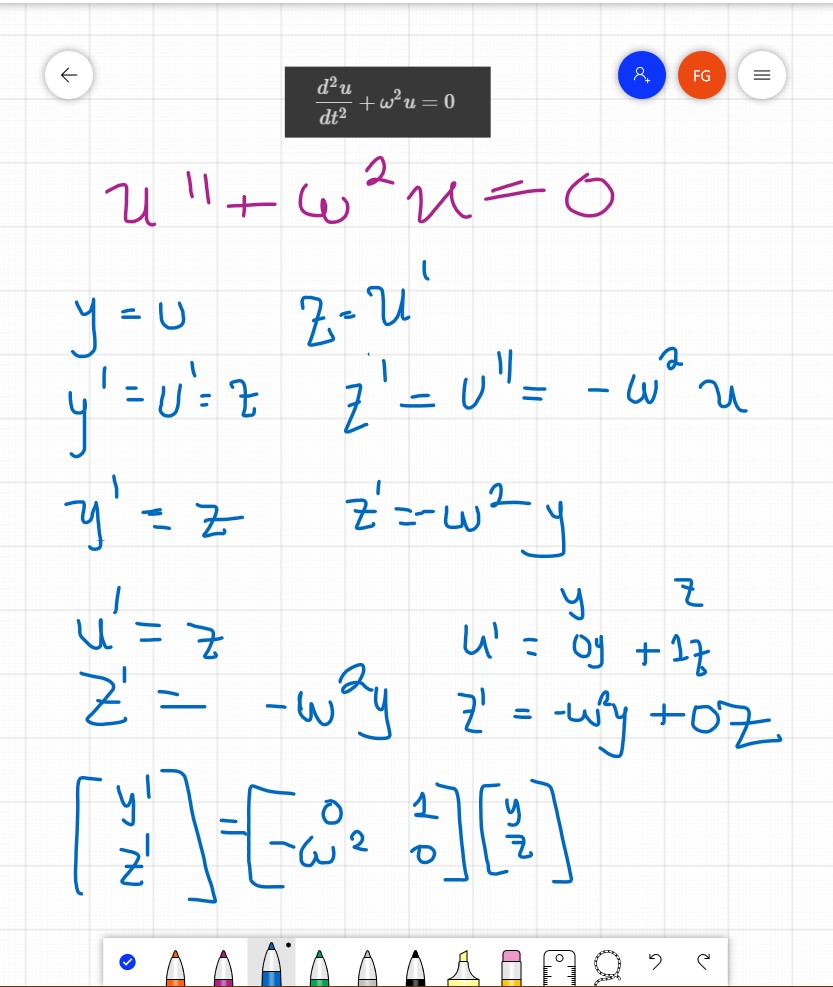 FG
d²u/dt² + ω²u = 0
u'' + ω² u = 0
y = u z = u'
y' = u' = z z' = u'' = - ω² u
y' = z z' = -ω² y
y z
u' = z u' = 0y + 1z
z' = -ω²y z' = -ω²y + 0z
[y' z'] = [0 1 -ω² 0] [y z]